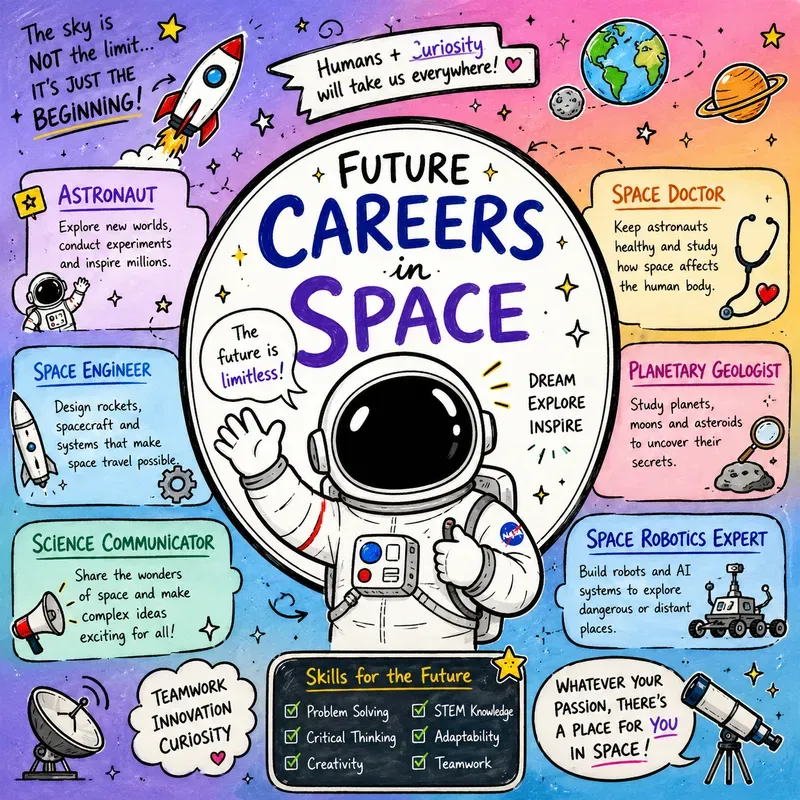 The sky is
NOT the limit...
IT'S JUST THE
BEGINNING!
Humans + Curiosity
will take us everywhere!
FUTURE
CAREERS
in
SPACE
ASTRONAUT
Explore new worlds,
conduct experiments
and inspire millions.
SPACE DOCTOR
Keep astronauts
healthy and study
how space affects
the human body.
The
future is
limitless!
DREAM
EXPLORE
INSPIRE
SPACE ENGINEER
Design rockets,
spacecraft and
systems that make
space travel possible.
PLANETARY GEOLOGIST
Study planets,
moons and asteroids
to uncover their
secrets.
NASA
SCIENCE COMMUNICATOR
Share the wonders
of space and make
complex ideas
exciting for all!
SPACE ROBOTICS EXPERT
Build robots and AI
systems to explore
dangerous or distant
places.
TEAMWORK
INNOVATION
CURIOSITY
Skills for the Future
Problem Solving
STEM Knowledge
Critical Thinking
Adaptability
Creativity
Teamwork
WHATEVER YOUR
PASSION, THERE'S
A PLACE FOR YOU
IN SPACE!